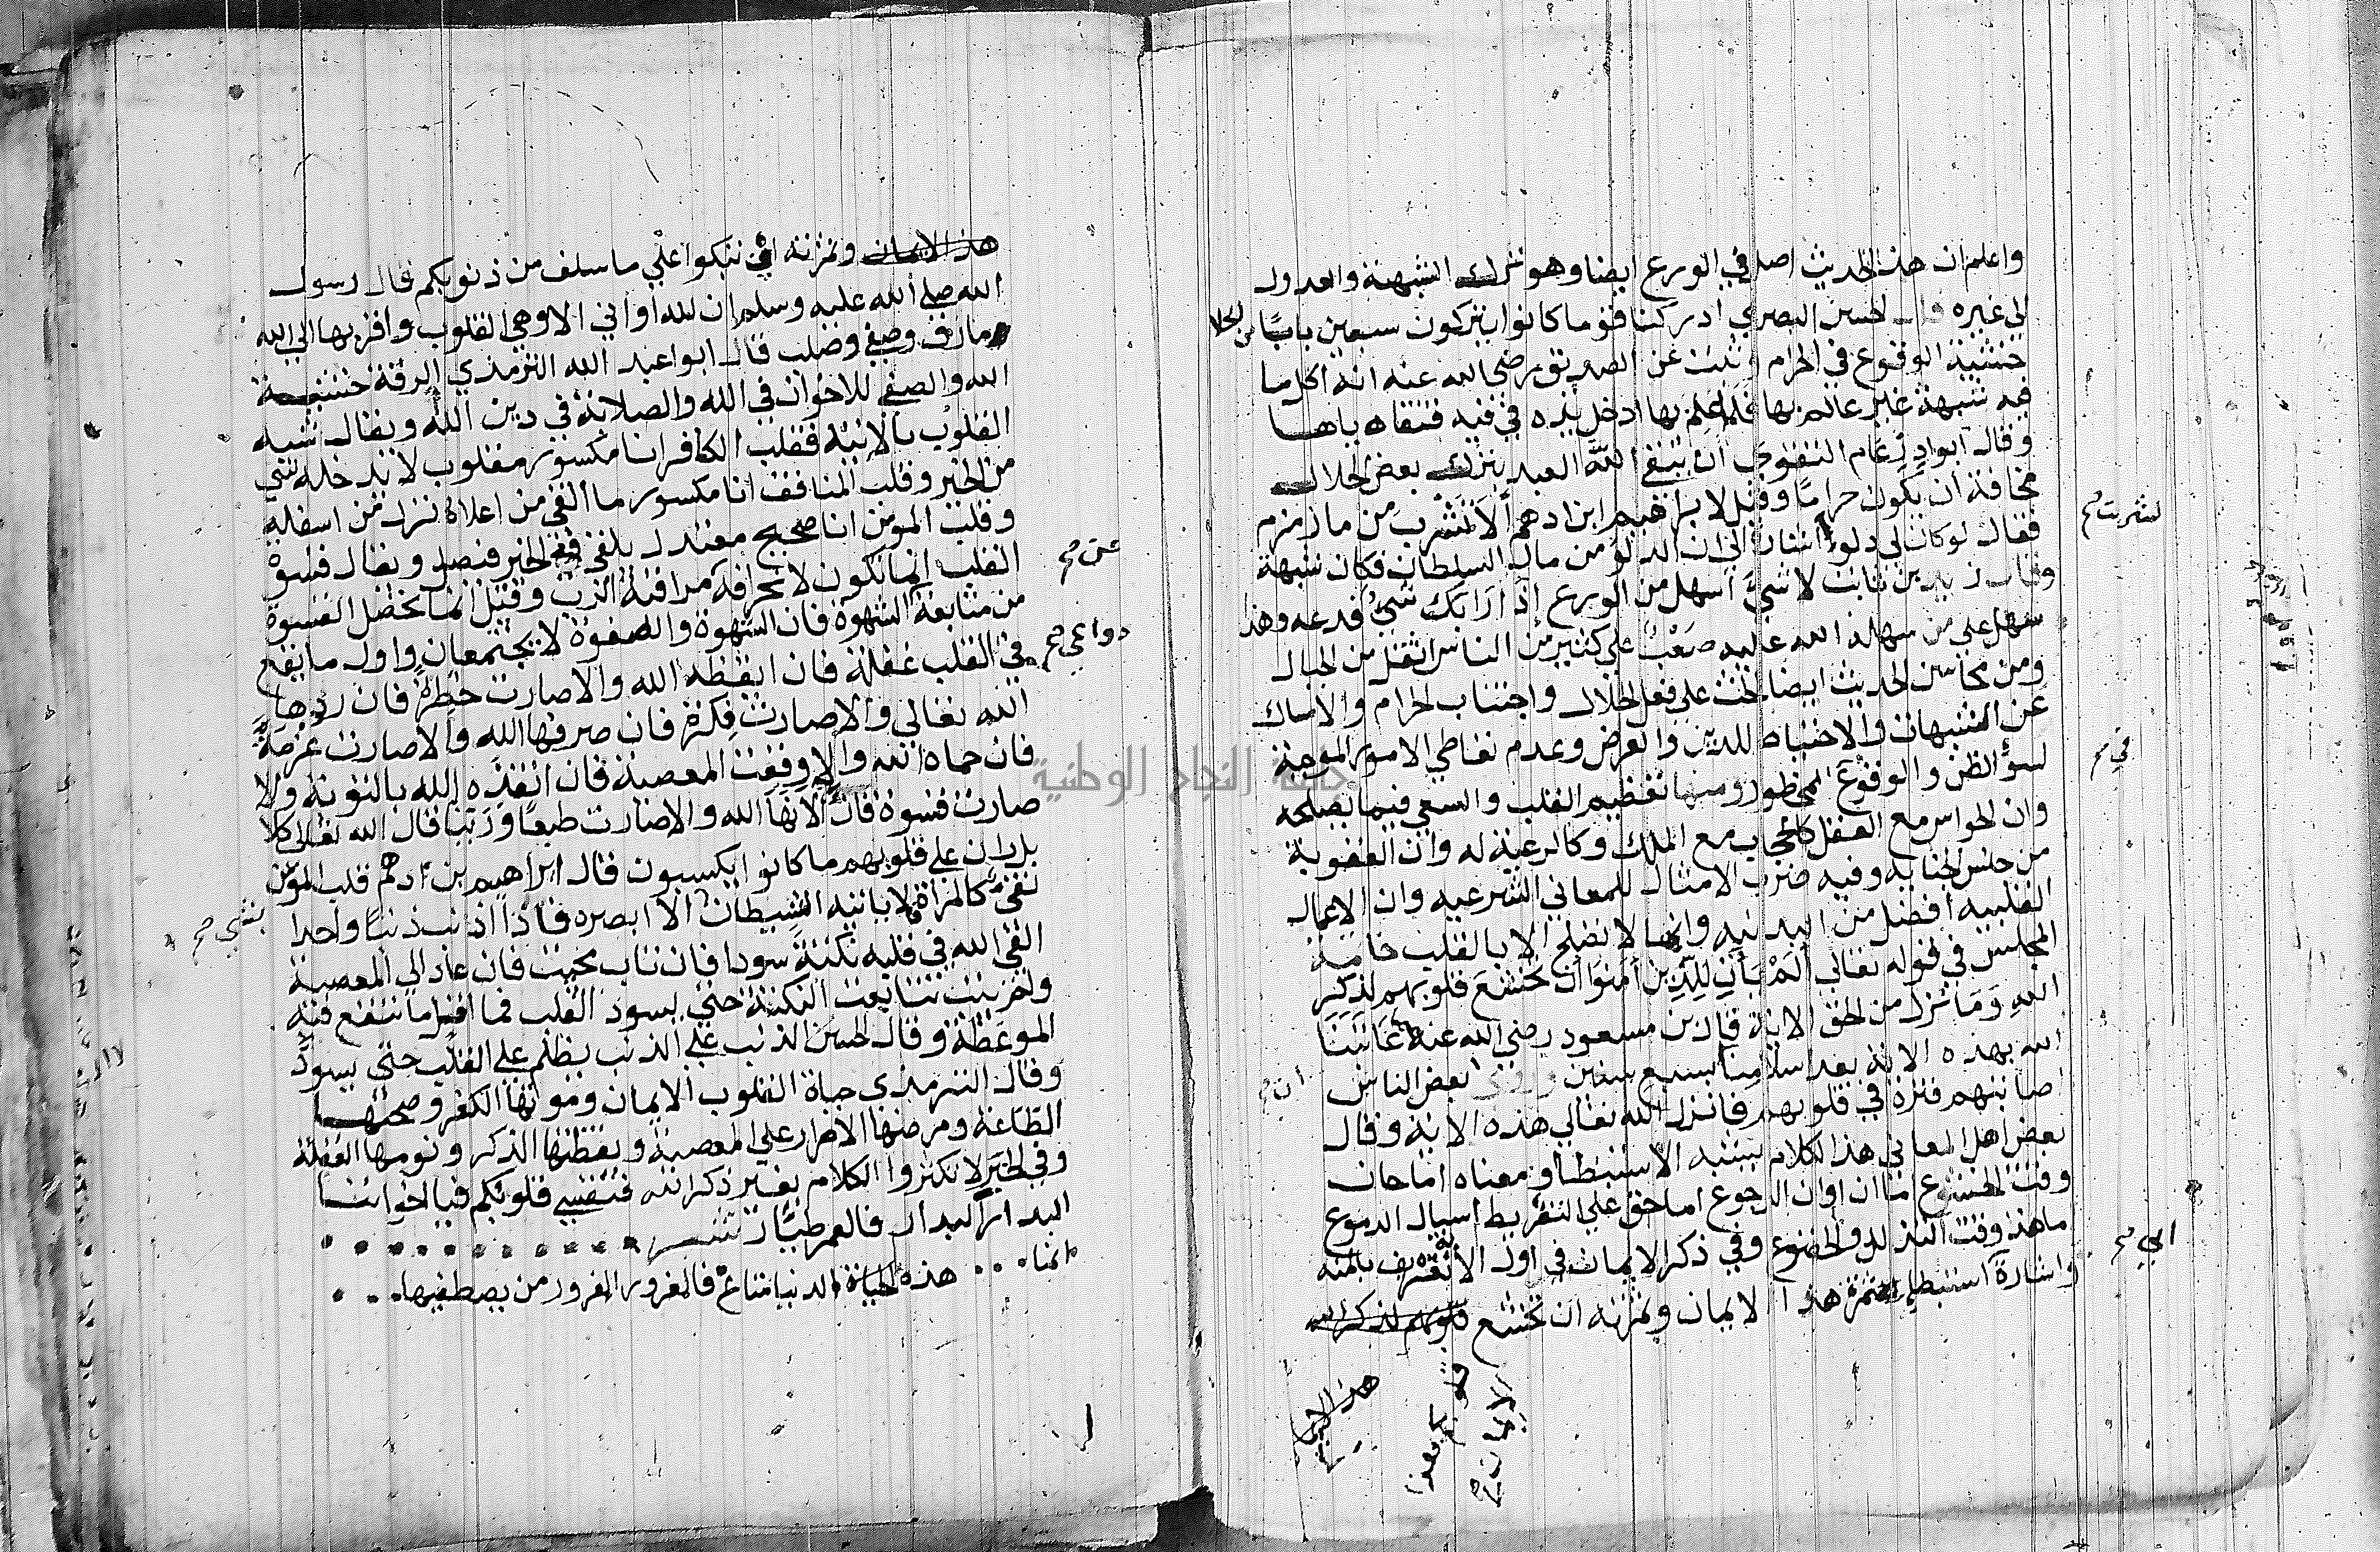 واعلم ان هذا الحديث اصل في الورع ايضا وهو ترك الشبهة والعدول
الى غيره قال الحسن البصري ادركنا قوما كانوا يتركون سبعين بابا من الحلال
خشية الوقوع في الحرام وثبت عن الصديق رضي الله عنه انه اكل ما
فيه شبهة غير عالم بها فلما علم بها ادخل يده في فيه فتقاه ياها
وقال ابوا در تمام التقوي ان يتقي الله العبد بترك بعض الحلال
مخافة ان يكون حراما وقيل لابراهيم ابن ادهم ألا تشرب من ما زمزم
فقال لو كان لي دلو اشار الى ان الدلو من مال السلطان فكان شبهة
لشربت صح
وقال زيد بن ثابت لا شيء اسهل من الورع إذا رَابَك شيء فدعه وهذا
سهل علي من سهله الله عليه صَعْب على كثير من الناس اثقل من الجبال
ومن محاسن الحديث ايضا الحث على فعل الحلال واجتناب الحرام والامساك
عن الشبهات والاحتياط للدين والعرض وعدم تعاطي الامور الموجبة
لسؤ الظن والوقوع المحظور ومنها تعظيم القلب والسعي فيما يصلحه
في صح
وان الحواس مع العقل كالحجاب مع الملك وكالرعية له وان العقوبة
من جنس الجنايه وفيه ضرب الامثال للمعاني الشرعيه وان الاعمال
القلبيه افضل من البدنيه وانها لا تصلح الا بالقلب خاتمة
المجلس في قوله تعالى أَلَمْ يَأْنِ لِلَّذِين آمنوا ان تخشع قلوبهم لِذِكْرِ
الله وَمَا نزل من الحق الاية قال بن مسعود رضي الله عنه عَاتَبَنَا
الله بهذه الاية بعد اسلامنا بسبع سنين وروى بعض الناس
ان صح
اصابتهم فترة في قلوبهم فانزل الله تعالى هذه الاية وقال
بعض اهل المعاني هذا الكلام يشبه الاستبطا ومعناه اما حان
وقت الخشوع اما ان اوان الرجوع اما حق علي التفريط اسبال الدموع
ما هذا وقت التذلل والخضوع وفي ذكر الايمان في اول الاية تعريف بالمنه
واشارة استبطا ثمرة هذا الايمان وثمرته ان تخشع قلوبهم لذكر الله
الي صح
هذا الايمان
هذا الايمان وثمرته ان تبكوا علي ما سلف من ذنوبكم قال رسول
الله صلى الله عليه وسلم ان لله أواني الا وهي القلوب واقربها الي الله
ما رق وصفي وصلب قال ابوا عبد الله الترمذي الرقة خشية
الله والصفي للاخوان في الله والصلابة في دين الله ويقال شبه
القلوب بالانية فقلب الكافر انا مكسور مقلوب لا يدخله شي
من الخير وقلب المنافق انا مكسور ما القي من اعلاه نزل من اسفله
وقلب المومن انا صحيح معتدل يلقي فيه الخير فيصل ويقال قسوة
القلب انما يكون لانحرافه مراقبة الرب وقيل انما تحصل القسوة
عن صح
من متابعة الشهوة فان الشهوة والصفوة لا يجتمعان واول ما يقع
في القلب غفلة فان ايقظه الله والا صارت خطرة فان ردها
دواعي صح
الله تعالى والا صارت فكرة فان صرفها الله والا صارت عزمة
فان حماه الله والا وقعت المعصية فان انقذه الله بالتوبة والا
صارت قسوة فان ألانها الله والا صارت طبعا ورينا قال الله تعالى كلا
بل ران على قلوبهم ما كانوا يكسبون قال ابراهيم بن ادهم قلب المؤمن
نقي كالمراة لا ياتيه الشيطان الا ابصره فاذا اذنب ذنبا واحدا
بشي صح
القى الله في قلبه نكتة سودا فان تاب محيت فان عاد الى المعصية
ولم يتب تتابعت النكتة حتى يسود القلب فما اقل ما تنفع فيه
الموعظة وقال الحسن الذنب على الذنب يظلم على القلب حتى يسود
وقال الترمذي حياة القلوب الايمان وموتها الكفر وصحتها
الطاعة ومرضها الاصرار علي المعصية ويقظتها الذكر ونومها الغفلة
وفي الخبر لا تكثروا الكلام بغير ذكر الله فتقسي قلوبكم فيا اخواننا
البدار البدار فالعمر طيار شعر
انما هذه الحياة الدنيا متاع فالغرور الغرور من يصطفيها
جامعة النجاح الوطنية